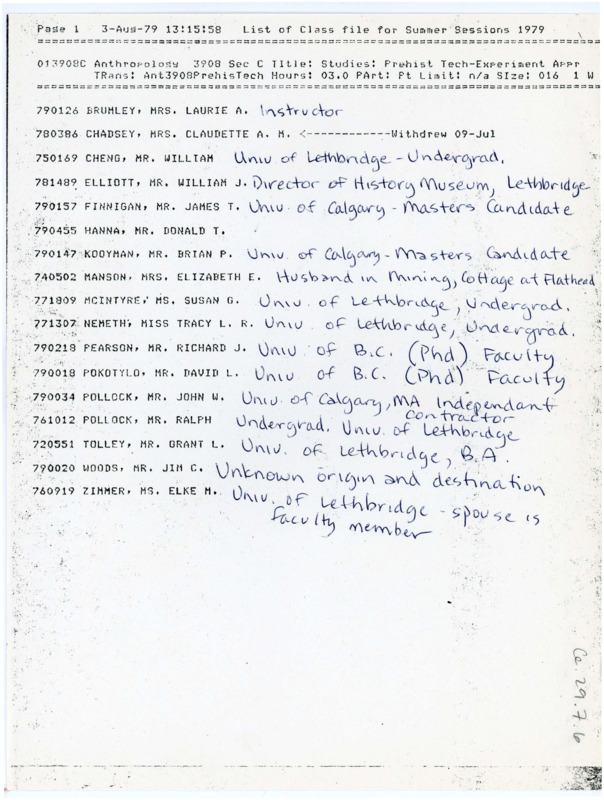 Page 1   3-Aug-79 13:15:58   List of Class file for Summer Sessions 1979
013908C Anthropology  3908 Sec C Title: Studies: Prehist Tech-Experiment Appr
TRans: Ant3908PrehisTech Hours: 03.0 PArt: Pt Limit: n/a SIze: 016  1 W
790126 BRUMLEY, MRS. LAURIE A. Instructor
780386 CHADSEY, MRS. CLAUDETTE A. M. <------------Withdrew 09-Jul
750169 CHENG, MR. WILLIAM Univ of Lethbridge - Undergrad.
781489 ELLIOTT, MR. WILLIAM J. Director of History Museum, Lethbridge
790157 FINNIGAN, MR. JAMES T. Univ. of Calgary - Masters Candidate
790455 HANNA, MR. DONALD T.
790147 KOOYMAN, MR. BRIAN P. Univ. of Calgary - Masters Candidate
740502 MANSON, MRS. ELIZABETH E. Husband in Mining, Cottage at Flathead
771809 MCINTYRE, MS. SUSAN G. Univ. of Lethbridge, Undergrad.
771307 NEMETH, MISS TRACY L. R. Univ. of Lethbridge, Undergrad.
790218 PEARSON, MR. RICHARD J. Univ. of B.C. (Phd) Faculty
790018 POKOTYLO, MR. DAVID L. Univ. of B.C. (Phd) Faculty
790034 POLLOCK, MR. JOHN W. Univ. of Calgary, MA Independant
contractor
761012 POLLOCK, MR. RALPH Undergrad. Univ. of Lethbridge
720551 TOLLEY, MR. GRANT L. Univ. of Lethbridge, B.A.
790020 WOODS, MR. JIM C. Unknown origin and destination
760919 ZIMMER, MS. ELKE M. Univ. of Lethbridge - spouse is
faculty member
Ce.29.7.6